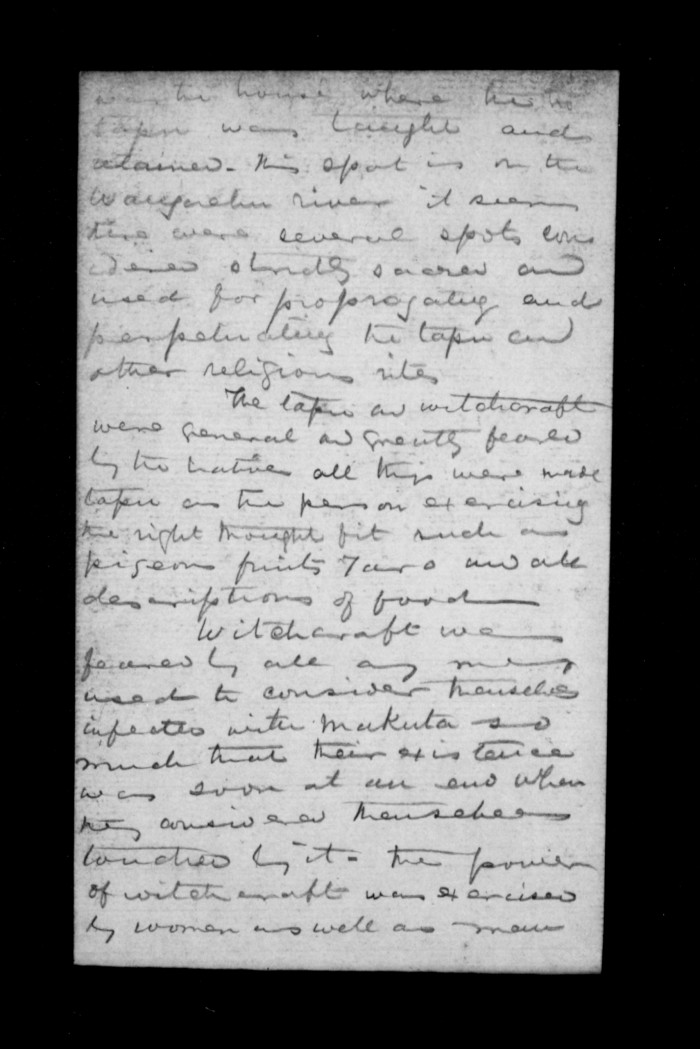 was the house where the
tapu was taught and
atained - this spot is on the
Wangaehu river it seems
there were several spots con
sidered strictly sacred and
used for propogating and
perpetuating the tapu and
other religious rites
The tapu and witchcraft
were general and greatly feared
by the natives all things were made
tapu as the person exercising
the right thought fit such as
pigeons fruits Taro and all
descriptions of food
Witchcraft was
feared by all and many
used to consider themselves
infected with Makuta so
much that their existence
was soon at an end when
they considered themselves
touched by it - the power
of witchcraft was exercised
by women as well as men